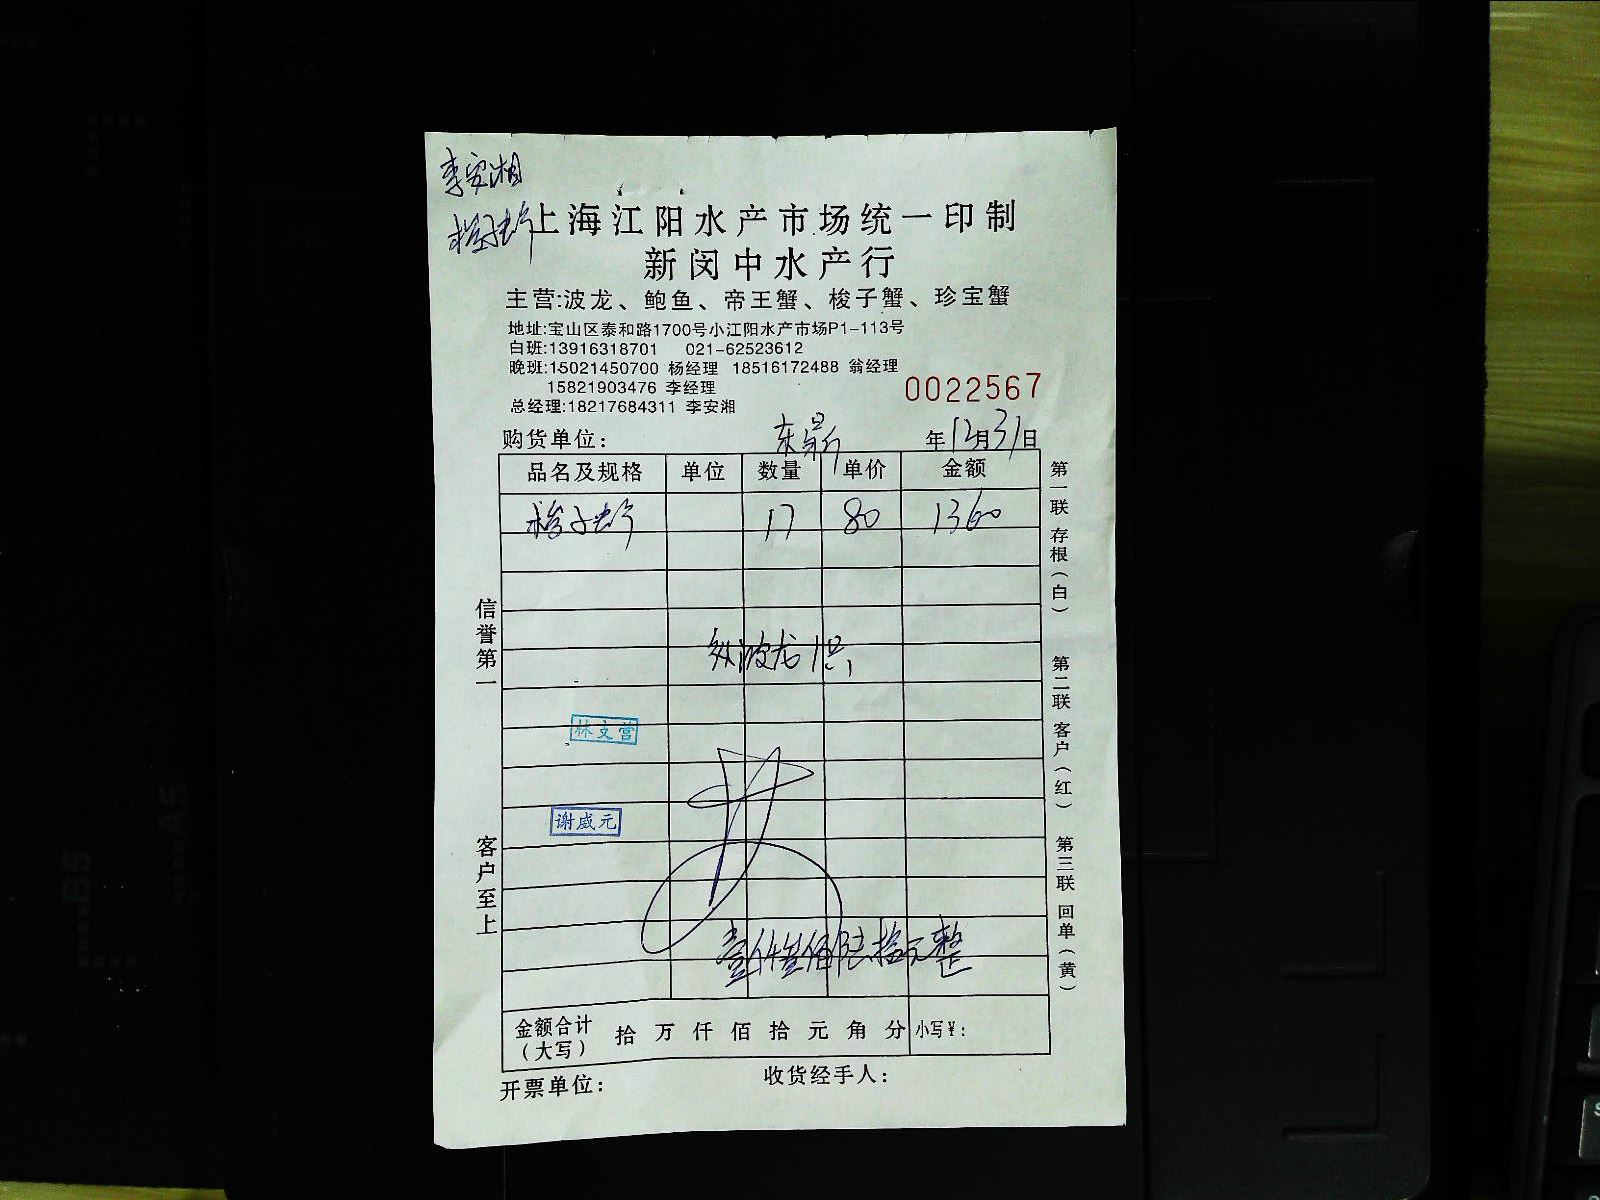 李安湘
梭子蟹
上海江阳水产市场统一印制
新闵中水产行
主营:波龙、鲍鱼、帝王蟹、梭子蟹、珍宝蟹
地址:宝山区泰和路1700号小江阳水产市场P1-113号
白班:13916318701 021-62523612
晚班:15021450700 杨经理 18516172488 翁经理
15821903476 李经理
0022567
总经理:18217684311 李安湘
购货单位: 年12月31日
品名及规格 单位 数量 单价 金额
梭子蟹 17 80 1360
波龙
林文营
谢威元
壹仟叁佰陆拾元整
金额合计(大写) 拾 万 仟 佰 拾 元 角 分 小写¥:
开票单位: 收货经手人:
信誉第一
客户至上
第一联 存根(白)
第二联 客户(红)
第三联 回单(黄)
B5
A5